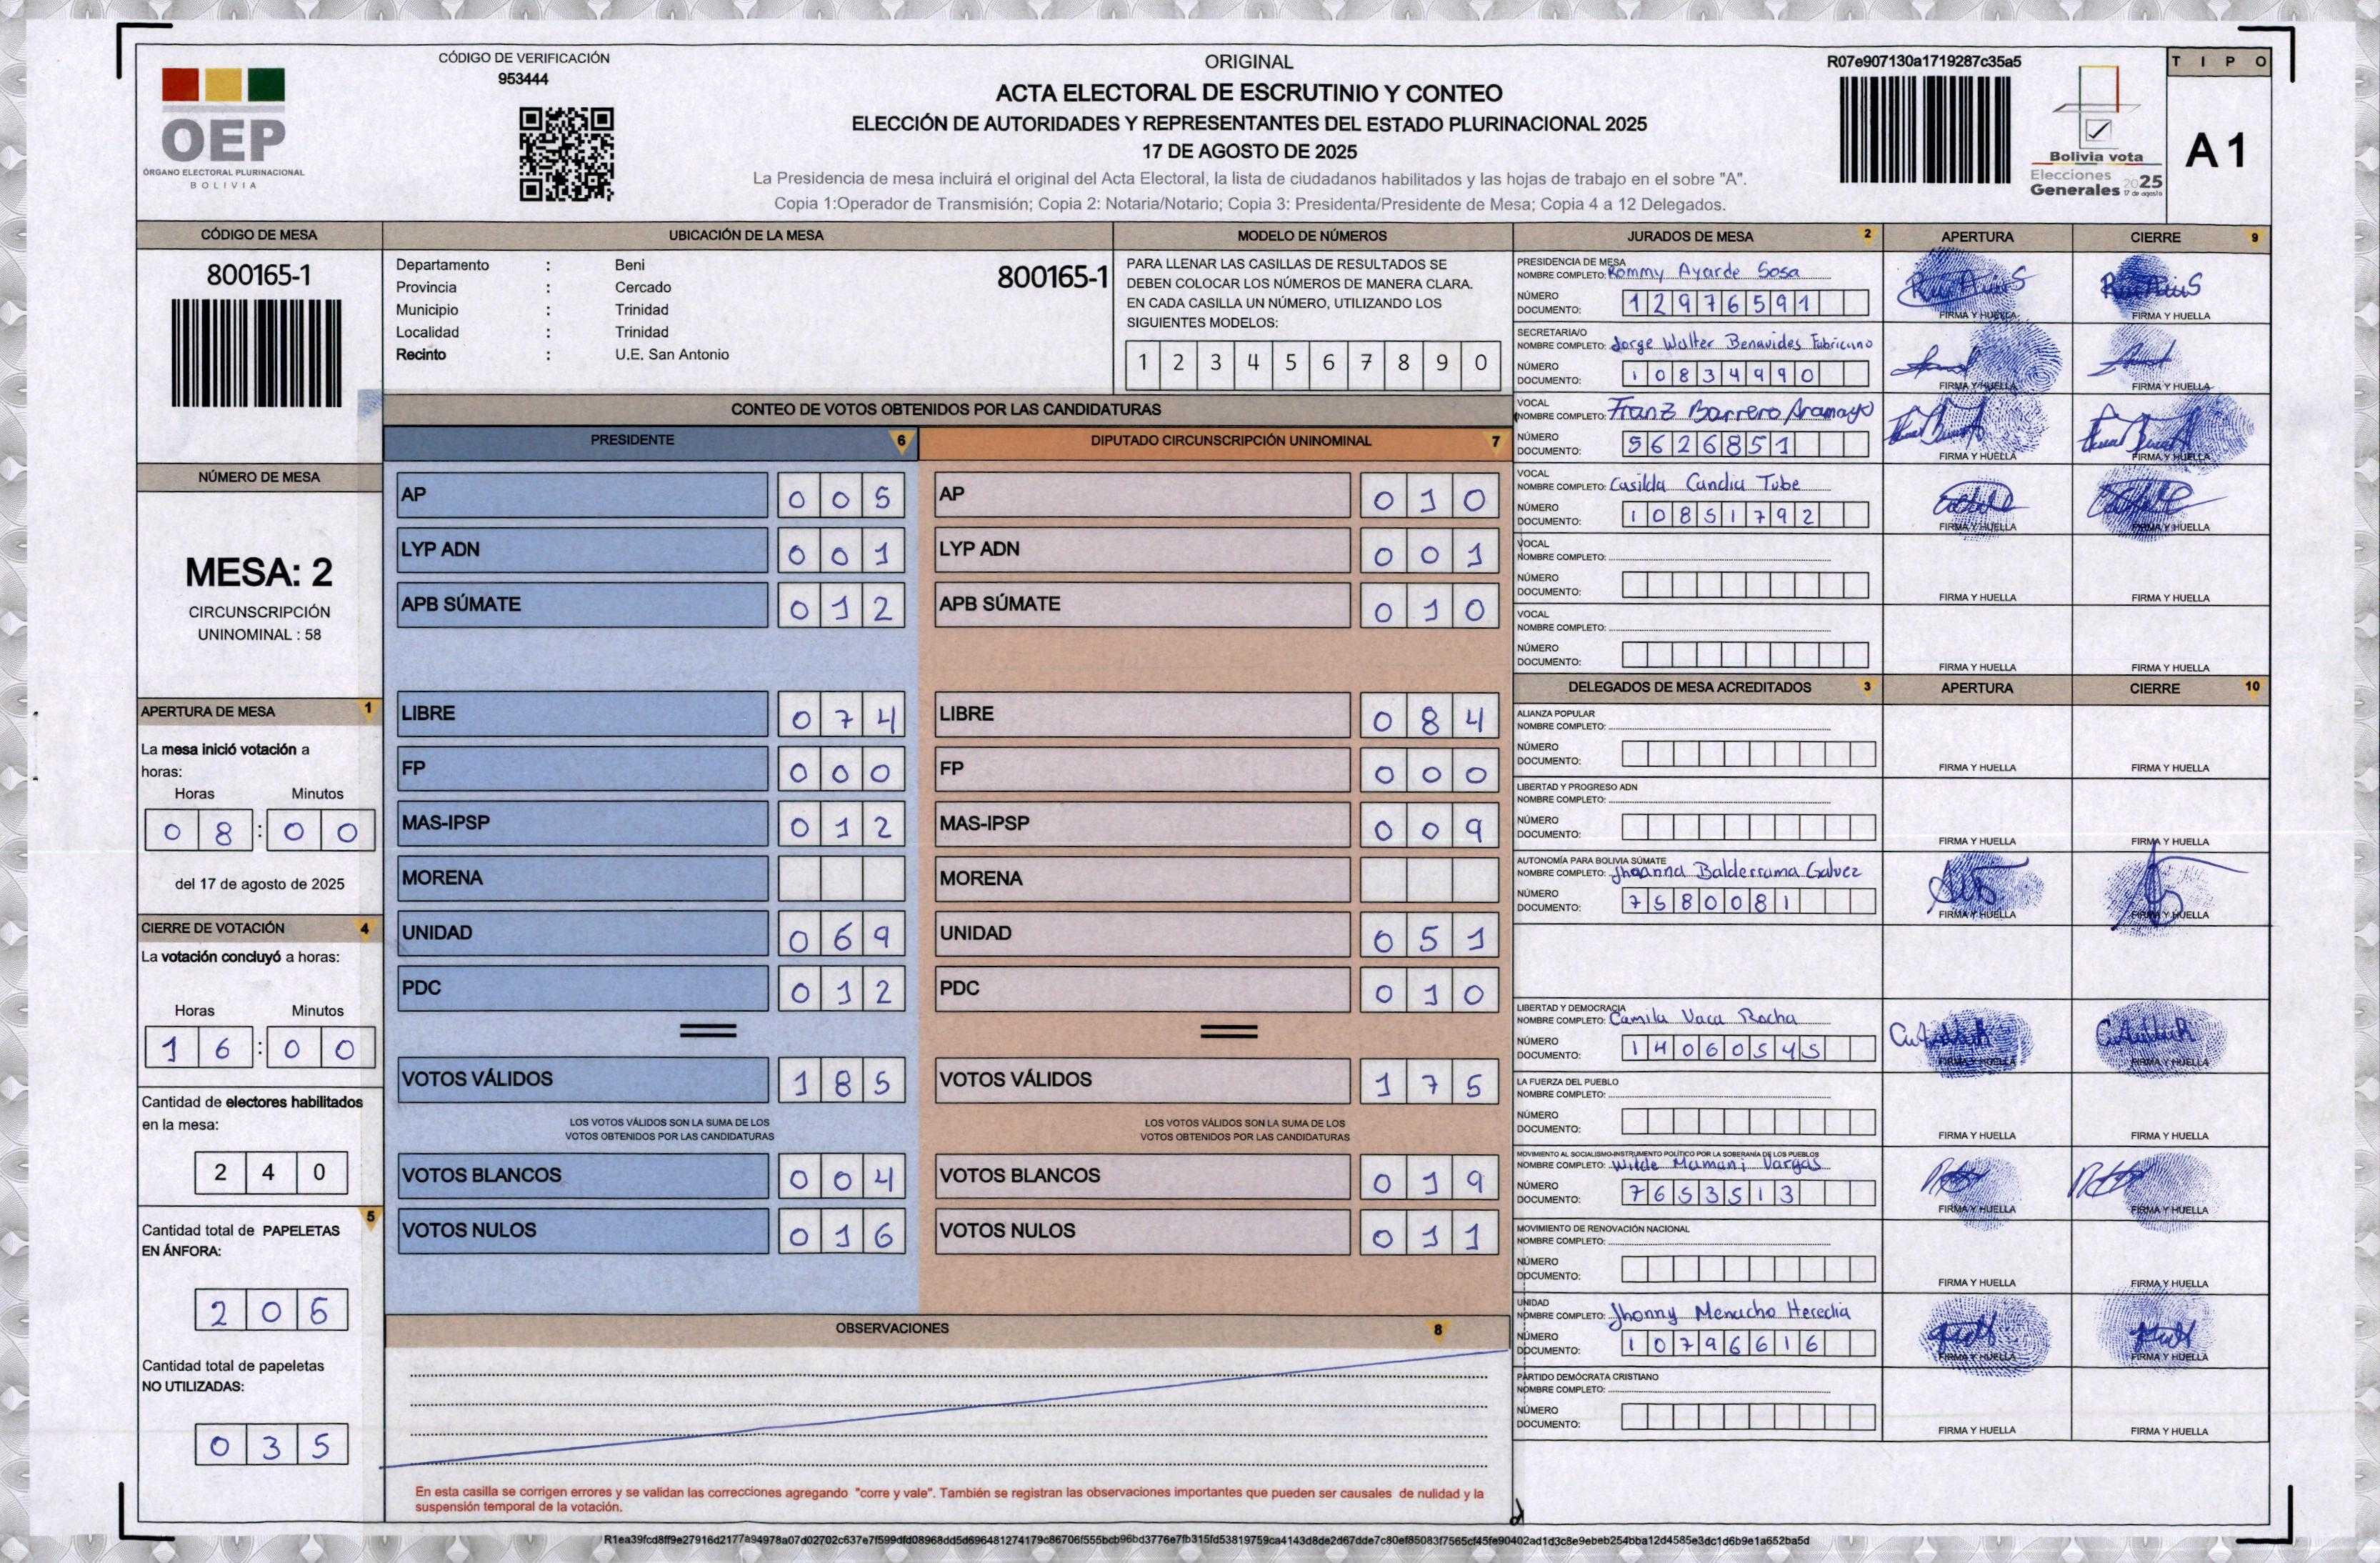 CÓDIGO DE VERIFICACIÓN
953444
OEP
ÓRGANO ELECTORAL PLURINACIONAL
BOLIVIA
ORIGINAL
ACTA ELECTORAL DE ESCRUTINIO Y CONTEO
ELECCIÓN DE AUTORIDADES Y REPRESENTANTES DEL ESTADO PLURINACIONAL 2025
17 DE AGOSTO DE 2025
La Presidencia de mesa incluirá el original del Acta Electoral, la lista de ciudadanos habilitados y las hojas de trabajo en el sobre "A".
Copia 1:Operador de Transmisión; Copia 2: Notaria/Notario; Copia 3: Presidenta/Presidente de Mesa; Copia 4 a 12 Delegados.
R07e907130a1719287c35a5
Bolivia vota
Elecciones
Generales 2025
17 de agosto
TIPO
A 1
CÓDIGO DE MESA
800165-1
UBICACIÓN DE LA MESA
Departamento : Beni
Provincia : Cercado
Municipio : Trinidad
Localidad : Trinidad
Recinto : U.E. San Antonio
800165-1
MODELO DE NÚMEROS
PARA LLENAR LAS CASILLAS DE RESULTADOS SE
DEBEN COLOCAR LOS NÚMEROS DE MANERA CLARA.
EN CADA CASILLA UN NÚMERO, UTILIZANDO LOS
SIGUIENTES MODELOS:
1 2 3 4 5 6 7 8 9 0
NÚMERO DE MESA
MESA: 2
CIRCUNSCRIPCIÓN
UNINOMINAL : 58
APERTURA DE MESA 1
La mesa inició votación a
horas:
Horas Minutos
0 8 : 0 0
del 17 de agosto de 2025
CIERRE DE VOTACIÓN 4
La votación concluyó a horas:
Horas Minutos
1 6 : 0 0
Cantidad de electores habilitados
en la mesa:
2 4 0
5
Cantidad total de PAPELETAS
EN ÁNFORA:
2 0 5
Cantidad total de papeletas
NO UTILIZADAS:
0 3 5
CONTEO DE VOTOS OBTENIDOS POR LAS CANDIDATURAS
PRESIDENTE 6
AP 0 0 5
LYP ADN 0 0 1
APB SÚMATE 0 1 2
LIBRE 0 7 4
FP 0 0 0
MAS-IPSP 0 1 2
MORENA
UNIDAD 0 6 9
PDC 0 1 2
VOTOS VÁLIDOS 1 8 5
LOS VOTOS VÁLIDOS SON LA SUMA DE LOS
VOTOS OBTENIDOS POR LAS CANDIDATURAS
VOTOS BLANCOS 0 0 4
VOTOS NULOS 0 1 6
DIPUTADO CIRCUNSCRIPCIÓN UNINOMINAL 7
AP 0 1 0
LYP ADN 0 0 1
APB SÚMATE 0 1 0
LIBRE 0 8 4
FP 0 0 0
MAS-IPSP 0 0 9
MORENA
UNIDAD 0 5 1
PDC 0 1 0
VOTOS VÁLIDOS 1 7 5
LOS VOTOS VÁLIDOS SON LA SUMA DE LOS
VOTOS OBTENIDOS POR LAS CANDIDATURAS
VOTOS BLANCOS 0 1 9
VOTOS NULOS 0 1 1
OBSERVACIONES 8
En esta casilla se corrigen errores y se validan las correcciones agregando "corre y vale". También se registran las observaciones importantes que pueden ser causales de nulidad y la
suspensión temporal de la votación.
JURADOS DE MESA 2 APERTURA CIERRE 9
PRESIDENCIA DE MESA
NOMBRE COMPLETO: Rommy Ayarde Sosa
NÚMERO
DOCUMENTO: 12976591
FIRMA Y HUELLA FIRMA Y HUELLA
SECRETARIA/O
NOMBRE COMPLETO: Jorge Walter Benavides Fabricano
NÚMERO
DOCUMENTO: 10834990
FIRMA Y HUELLA FIRMA Y HUELLA
VOCAL
NOMBRE COMPLETO: Franz Barrero Aramayo
NÚMERO
DOCUMENTO: 5626851
FIRMA Y HUELLA FIRMA Y HUELLA
VOCAL
NOMBRE COMPLETO: Casilda Candia Tube
NÚMERO
DOCUMENTO: 10851792
FIRMA Y HUELLA FIRMA Y HUELLA
VOCAL
NOMBRE COMPLETO:
NÚMERO
DOCUMENTO:
FIRMA Y HUELLA FIRMA Y HUELLA
VOCAL
NOMBRE COMPLETO:
NÚMERO
DOCUMENTO:
FIRMA Y HUELLA FIRMA Y HUELLA
DELEGADOS DE MESA ACREDITADOS 3 APERTURA CIERRE 10
ALIANZA POPULAR
NOMBRE COMPLETO:
NÚMERO
DOCUMENTO:
FIRMA Y HUELLA FIRMA Y HUELLA
LIBERTAD Y PROGRESO ADN
NOMBRE COMPLETO:
NÚMERO
DOCUMENTO:
FIRMA Y HUELLA FIRMA Y HUELLA
AUTONOMÍA PARA BOLIVIA SÚMATE
NOMBRE COMPLETO: Jhoanna Balderrama Galvez
NÚMERO
DOCUMENTO: 7580081
FIRMA Y HUELLA FIRMA Y HUELLA
LIBERTAD Y DEMOCRACIA
NOMBRE COMPLETO: Camila Vaca Rocha
NÚMERO
DOCUMENTO: 14060545
FIRMA Y HUELLA FIRMA Y HUELLA
LA FUERZA DEL PUEBLO
NOMBRE COMPLETO:
NÚMERO
DOCUMENTO:
FIRMA Y HUELLA FIRMA Y HUELLA
MOVIMIENTO AL SOCIALISMO-INSTRUMENTO POLÍTICO POR LA SOBERANÍA DE LOS PUEBLOS
NOMBRE COMPLETO: Wilde Mamani Vargas
NÚMERO
DOCUMENTO: 7653513
FIRMA Y HUELLA FIRMA Y HUELLA
MOVIMIENTO DE RENOVACIÓN NACIONAL
NOMBRE COMPLETO:
NÚMERO
DOCUMENTO:
FIRMA Y HUELLA FIRMA Y HUELLA
UNIDAD
NOMBRE COMPLETO: Jhonny Menacho Heredia
NÚMERO
DOCUMENTO: 10796616
FIRMA Y HUELLA FIRMA Y HUELLA
PARTIDO DEMÓCRATA CRISTIANO
NOMBRE COMPLETO:
NÚMERO
DOCUMENTO:
FIRMA Y HUELLA FIRMA Y HUELLA